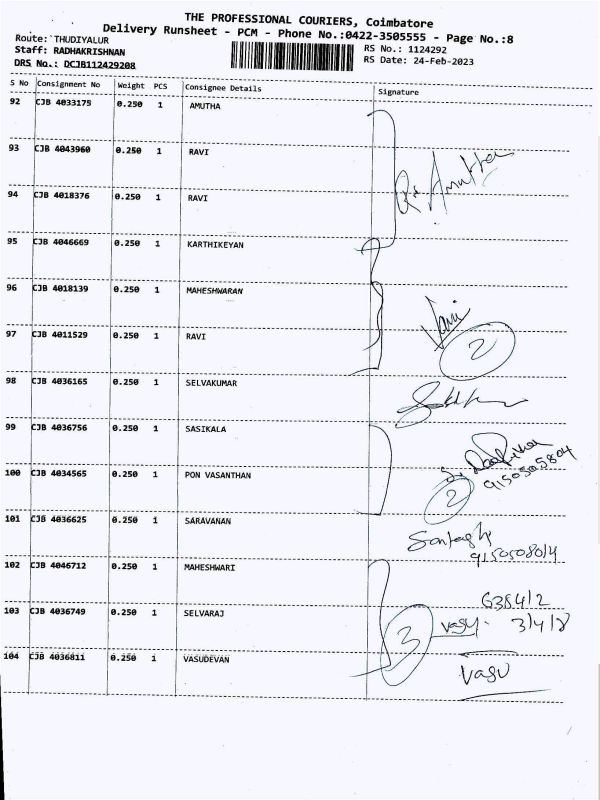 THE PROFESSIONAL COURIERS, Coimbatore
Delivery Runsheet - PCM - Phone No.:0422-3505555 - Page No.:8
Route: THUDIYALUR
RS No.: 1124292
Staff: RADHAKRISHNAN
RS Date: 24-Feb-2023
DRS No.: DCJB112429208
S No Consignment No Weight PCS Consignee Details Signature
92 CJB 4033175 0.250 1 AMUTHA
93 CJB 4043960 0.250 1 RAVI
94 CJB 4018376 0.250 1 RAVI
95 CJB 4046669 0.250 1 KARTHIKEYAN
96 CJB 4018139 0.250 1 MAHESHWARAN
97 CJB 4011529 0.250 1 RAVI
2
98 CJB 4036165 0.250 1 SELVAKUMAR
99 CJB 4036756 0.250 1 SASIKALA
9150505804
100 CJB 4034565 0.250 1 PON VASANTHAN
2
101 CJB 4036625 0.250 1 SARAVANAN
102 CJB 4046712 0.250 1 MAHESHWARI
103 CJB 4036749 0.250 1 SELVARAJ
3 vasu
104 CJB 4036811 0.250 1 VASUDEVAN
vasu